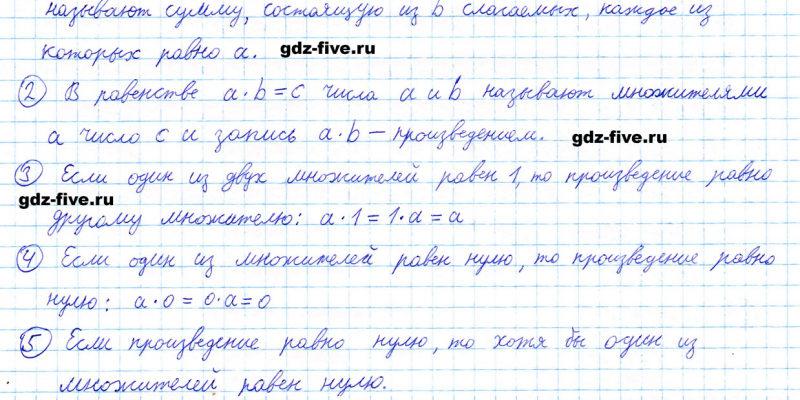 называют сумму, состоящую из b слагаемых, каждое из
которых равно a. gdz-five.ru
2 В равенстве a·b=c числа a и b называют множителями
а число c и запись a·b – произведением. gdz-five.ru
3 Если один из двух множителей равен 1, то произведение равно
gdz-five.ru
другому множителю: a·1=1·a=a
4 Если один из множителей равен нулю, то произведение равно
нулю: a·0=0·a=0
5 Если произведение равно нулю, то хотя бы один из
множителей равен нулю.